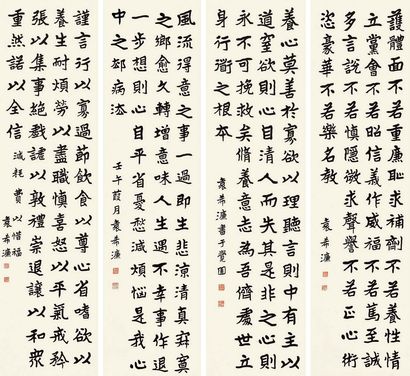 護體面不若重廉恥求補不若養性情
立黨會不若昭信義作威福不若篤至誠
多言說不若慎隱微求聲譽不若正心術
恣豪華不若樂名教 袁希濂
養心莫善於寡欲以理聽言則中有主以
道窒欲則心目清人而其是非之心則
永不可挽救矣脩養意志為吾儕處世立
身行衜之根本 袁希濂書于覺園
風流得意之事一過即生悲涼清真寂寞
之鄉愈久轉增意味人生萬事不幸作退
一步想則心目平省憂愁減煩惱是我心
中之卻病法 壬午葭月袁希濂
謹言行以寡過節飲食以尊心省嗜欲以
養生耐煩勞以盡職慎喜怒以平氣戒矜
張以集事絕戲謔以敦禮崇退讓以和眾
重然諾以全信 減耗費以惜福 袁希濂